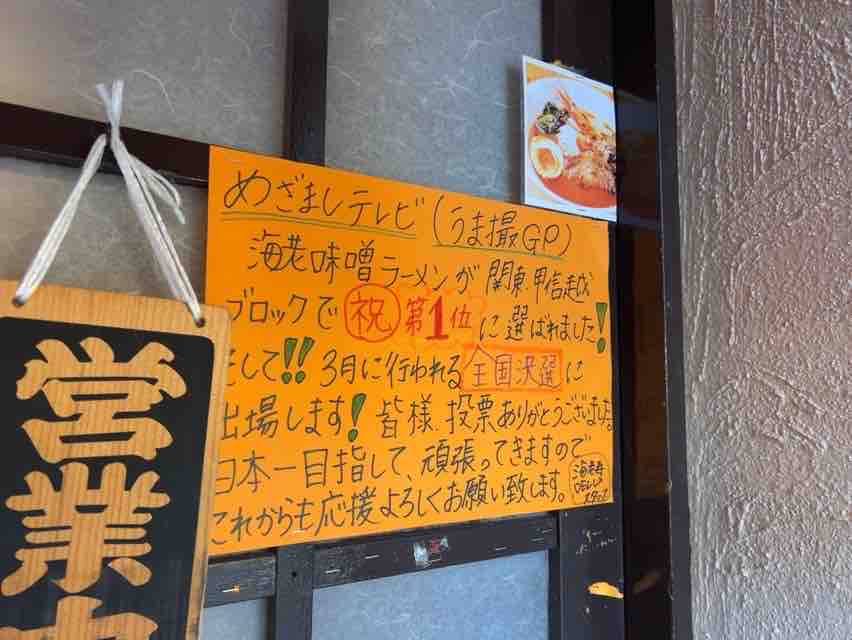 めざましテレビ(うま撮GP)
海老味噌ラーメンが関東.甲信越
ブロックで祝第1位に選ばれました!
そして!! 3月に行われる全国決選に
出場します! 皆様.投票ありがとうございました。
日本一目指して、頑張ってきますので
これからも応援よろしくお願い致します。
営業中